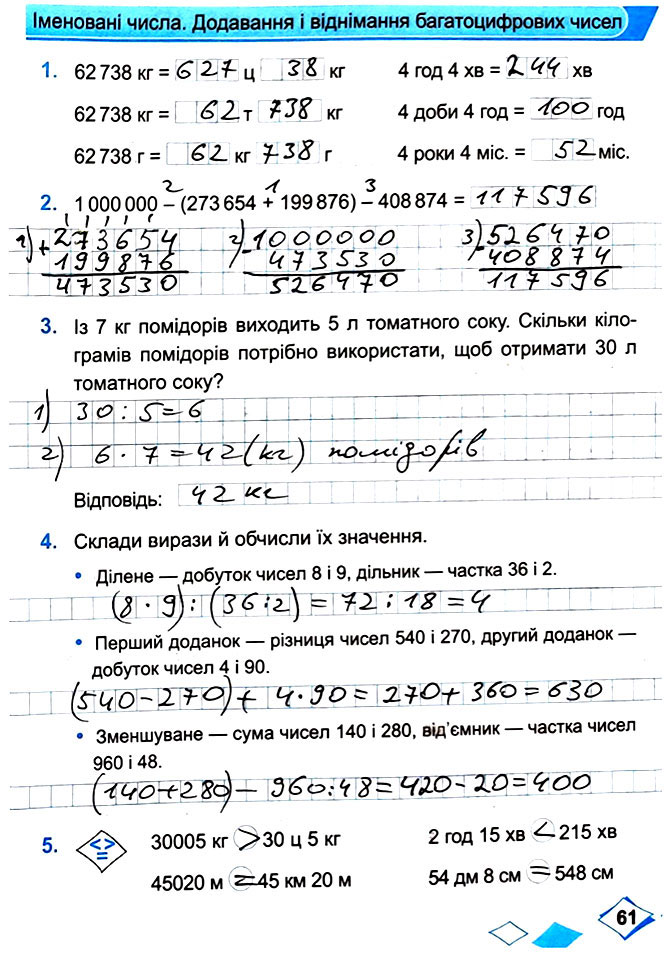 Іменовані числа. Додавання і віднімання багатоцифрових чисел
1. 62 738 кг = 627 ц 38 кг 4 год 4 хв = 244 хв
62 738 кг = 62 т 738 кг 4 доби 4 год = 100 год
62 738 г = 62 кг 738 г 4 роки 4 міс. = 52 міс.
2 1 3
2. 1 000 000 – (273 654 + 199 876) – 408 874 = 117 596
1) +273654 2) -1000000 3) -526470
199876 473530 408874
473530 526470 117596
3. Із 7 кг помідорів виходить 5 л томатного соку. Скільки кіло-
грамів помідорів потрібно використати, щоб отримати 30 л
томатного соку?
1) 30 : 5 = 6
2) 6 · 7 = 42 (кг) помідорів
Відповідь: 42 кг
4. Склади вирази й обчисли їх значення.
• Ділене — добуток чисел 8 і 9, дільник — частка 36 і 2.
(8 · 9) : (36 : 2) = 72 : 18 = 4
• Перший доданок — різниця чисел 540 і 270, другий доданок —
добуток чисел 4 і 90.
(540 – 270) + 4 · 90 = 270 + 360 = 630
• Зменшуване — сума чисел 140 і 280, від’ємник — частка чисел
960 і 48.
(140 + 280) – 960 : 48 = 420 – 20 = 400
5. < > = 30005 кг > 30 ц 5 кг 2 год 15 хв < 215 хв
45020 м = 45 км 20 м 54 дм 8 см = 548 см
61